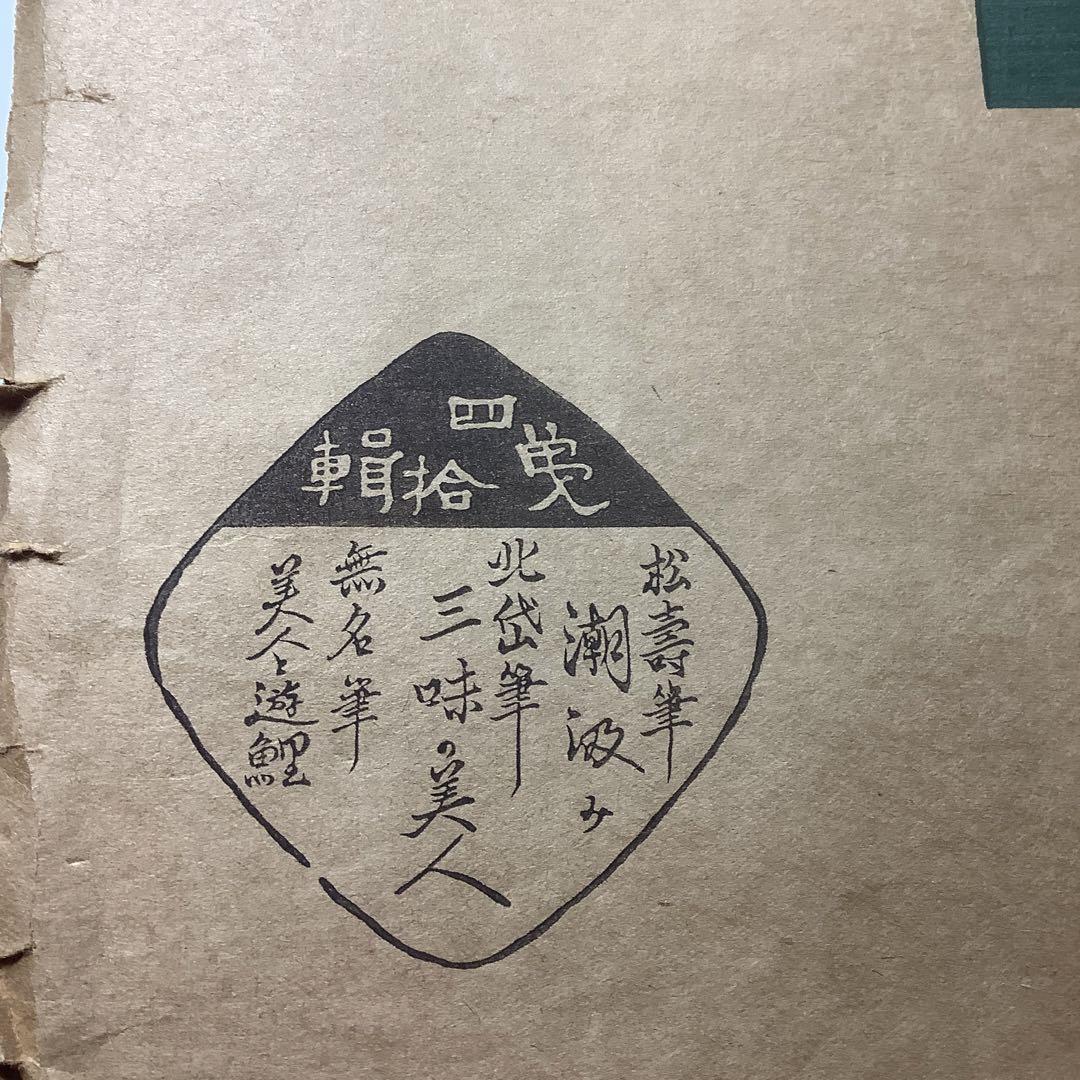 四拾輯
松壽筆
潮汲み
北岱筆
三味の美人
無名筆
美人と遊鯉